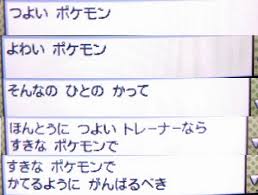 つよい ポケモン
よわい ポケモン
そんなの ひとの かって
ほんとうに つよい トレーナーなら
すきな ポケモンで
すきな ポケモンで
かてるように がんばるべき